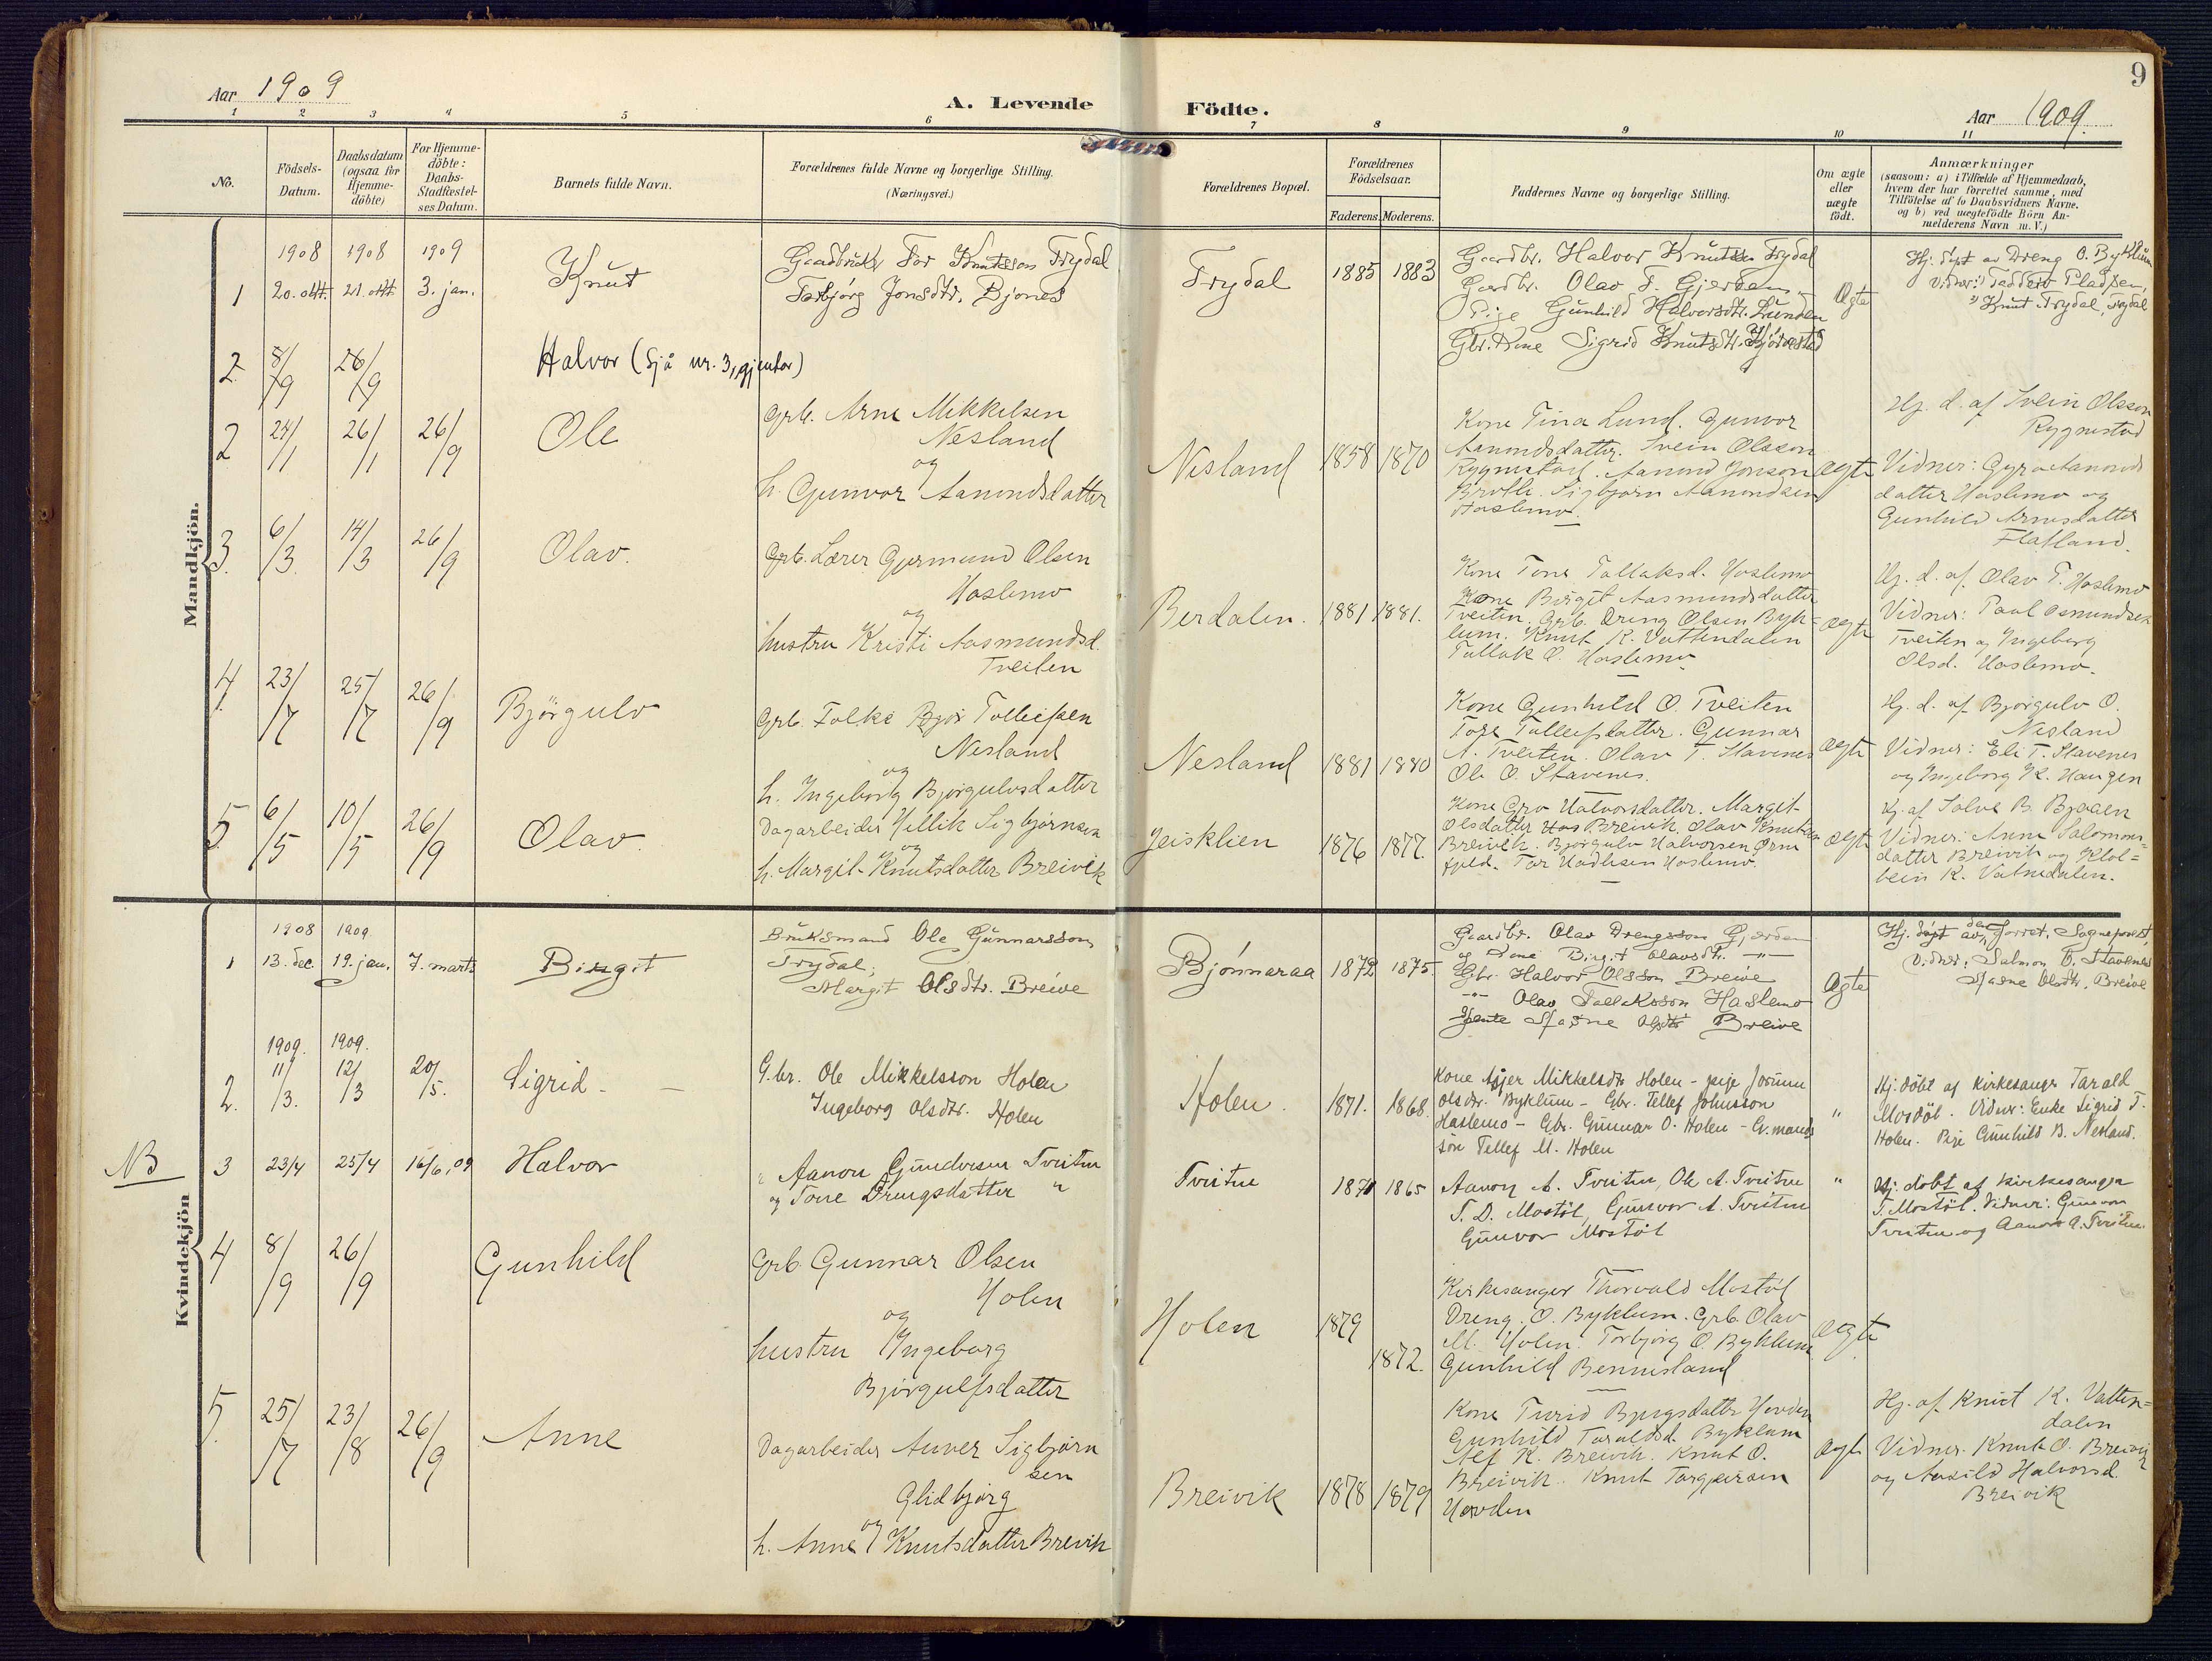 9
Aar 1909
A. Levende Födte.
Aar 1909.
1 2 3 4 5 6 7 8 9 10 11
No.
Födsels-
Datum.
Daabsdatum
(ogsaa for
Hjemme-
döbte)
For Hjemme-
döbte:
Daabs-
Stadfæstel-
ses Datum.
Barnets fulde Navn.
Forældrenes fulde Navne og borgerlige Stilling.
(Næringsvei.)
Forældrenes Bopæl.
Forældrenes
Födselsaar.
Faderens. Moderens.
Faddernes Navne og borgerlige Stilling.
Om ægte
eller
uægte
födt.
Anmærkninger
(saasom: a) i Tilfælde af Hjemmedaab,
hvem der har forrettet samme, med
Tilföielse af to Daabsvidners Navne,
og b) ved uægtefödte Börn An-
melderens Navn m. V.)
Mandkjön.
1908 1908 1909
1 20. okt. 21. okt. 3. jan.
Knut
Gaardbruker Tor Knutsson Trydal
Torbjørg Jonsdtr. Bjones
Trydal
1885 1883
Gaardbr. Halvor Knutsson Trydal
Gardbr. Olav T. Gjerden
Pige Gunhild Halvorsdtr. Lunden
Gbr. Kone Sigrid Knutsdtr.
Ægte
Hj. døpt av Dreng O. Byklum
Vidner:
" Knut Trydal, Trydal
2. 8/9 26/9
Halvor (Sjå nr. 3, gjentor)
2 24/1 26/1 26/9
Ole
Grb. Arne Mikkelsen
Nesland
og
h. Gunvor Aanondsdatter
Nesland
1858 1870
Kone Tina Lund. Gunvor
Aanondsdatter. Svein Olsson
Rygnestad. Aanund Jonson
Brotte. Sigbjørn Aanondsen
Hoslemo.
ægte
Hj. d. af Svein Olsson
Rygnestad
Vidner: Gyro Aanonds
datter Hoslemo og
Gunhild Arnesdatter
Flatland.
3. 6/3 14/3 26/9
Olav.
Grb. Lærer Gjermund Olsen
Hoslemo
og
hustru Kristi Aasmundsd.
Tveiten
Berdalen.
1881 1881.
Kone Tone Tallaksd. Hoslemo
Kone Birgit Aasmundsdatter
Tveiten. Grb. Dreng Olsen Byk-
lum. Knut K. Vattendalen
Tallak O. Hoslemo.
ægte
Hj. d. af Olav T. Hoslemo
Vidner: Paal Osmundsen
Tveiten og Ingeborg
Olsd. Hoslemo.
4. 23/7 25/7 26/9
Bjørgulv
Grb. Folke Tollefsen
Nesland
og
h. Ingeborg Bjørgulvsdatter
Nesland
1881 1880
Kone Gunhild O. Tveiten
Tore Tallefsdatter. Gunnar
A. Tveiten. Olav T. Stavenes
Ole O. Stavenes.
ægte
Hj. d. af Bjørgulv O.
Nesland
Vidner: Eli T. Stavenes
og Ingeborg K. Haugen
5. 6/5 10/5 26/9
Olav.
Dagarbeider Hellik Sigbjørnsen
og
h. Margit Knutsdatter Breivik
Jeisklien
1876 1877.
Kone Gro Halvorsdatter. Margit
Olsdatter Breivik. Olav Knutsen
Breivik. Bjørgulv Halvorsen Ørne
fjeld. Tor Hadlesen Hoslemo.
ægte
Hj. af Salve B. Bjaaen
Vidner: Anne Salomons-
datter Breivik og Klol-
bein K. Vatnedalen.
Kvindekjön
1908 1909
1 13. dec. 19. jan. 7. marts
Birgit
Bruksmand Ole Gunnarsson
Trydal;
Margit Olsdtr. Breive
Bjønnaraa
1872. 1875.
Gaardbr. Olav Drengsson Gjerden
og Kone Birgit Olavsdtr. -"-
Gbr. Halvor Olsson Breive
-"- Olav Tallaksson Haslemo
Gjente Olsdtr Breive
Ægte
Hj. døpt av den forret. Sogneprest,
Vidner: Salmon T. Stavenes
Olsdtr. Breive
1909. 1909.
2. 11/3. 12/3 20/5.
Sigrid -
G.br. Ole Mikkelsson Holen
Ingeborg Olsdtr. Holen
Holen.
1871. 1868.
Kone Asjer Mikkelsdtr Holen - pige Jorunn
Olsdtr. Byklum - Gbr. Tellef Johnsson
Haslemo - Gbr. Gunnar O. Holen - G.mands
søn Tellef M. Holen
"
Hj. döbt af kirkesanger Tarald
Mosdöl. Vidner: Enke Sigrid T.
Holen. Pige Gunhild B. Nesland.
NB
3 23/4 25/4 16/6,09
Halvor
" Aanon Gundersen Tveiten
og Tone Drengsdatter "
Tveiten
1871 1865
Aanon A. Tveiten, Ole A. Tveiten
T. D. Mostöl, Gunvor A. Tveiten
Gunvor Mostöl
"
Hj. döbt af kirkesanger
T. Mostöl. Vidner: Gunvor
Tveiten og Aanon A. Tveiten.
4 8/9 26/9
Gunhild
Grb. Gunnar Olsen
Holen
og
hustru Ingeborg
Bjørgulfsdatter
Holen
1879
1872.
Kirkesanger Thorvald Mostøl
Dreng O. Byklum. Grb. Olav
M. Holen. Torbjørg O. Byklum
Gunhild Bennesland
ægte
5. 25/7 23/8 26/9
Anne
Dagarbeider Auver Sigbjørn
sen
Glidbjørg
og
h. Anne Knutsdatter Breivik
Breivik
1878 1879
Kone Turid Bjugsdatter Hovden
Gunhild Taraldsd. Byklum
Alf K. Breivik. Knut O.
Breivik. Knut Torgeirsen
Hovden
ægte
Hj. af Knut K. Vatten-
dalen
Vidner. Knut O. Breivik
og Aasild Halvorsd.
Breivik